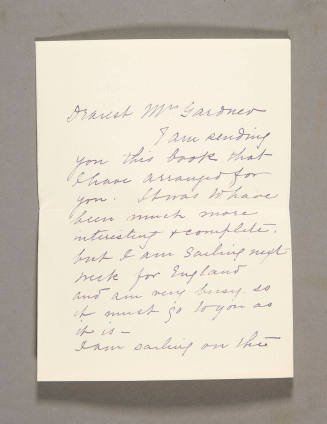 Dearest Mrs Gardner
I am sending
you this book that
I have arranged for
you. It was to have
been much more
interesting & complete,
but I am sailing next
week for England
and am very busy so
it must go to you as
it is –
I am sailing on the